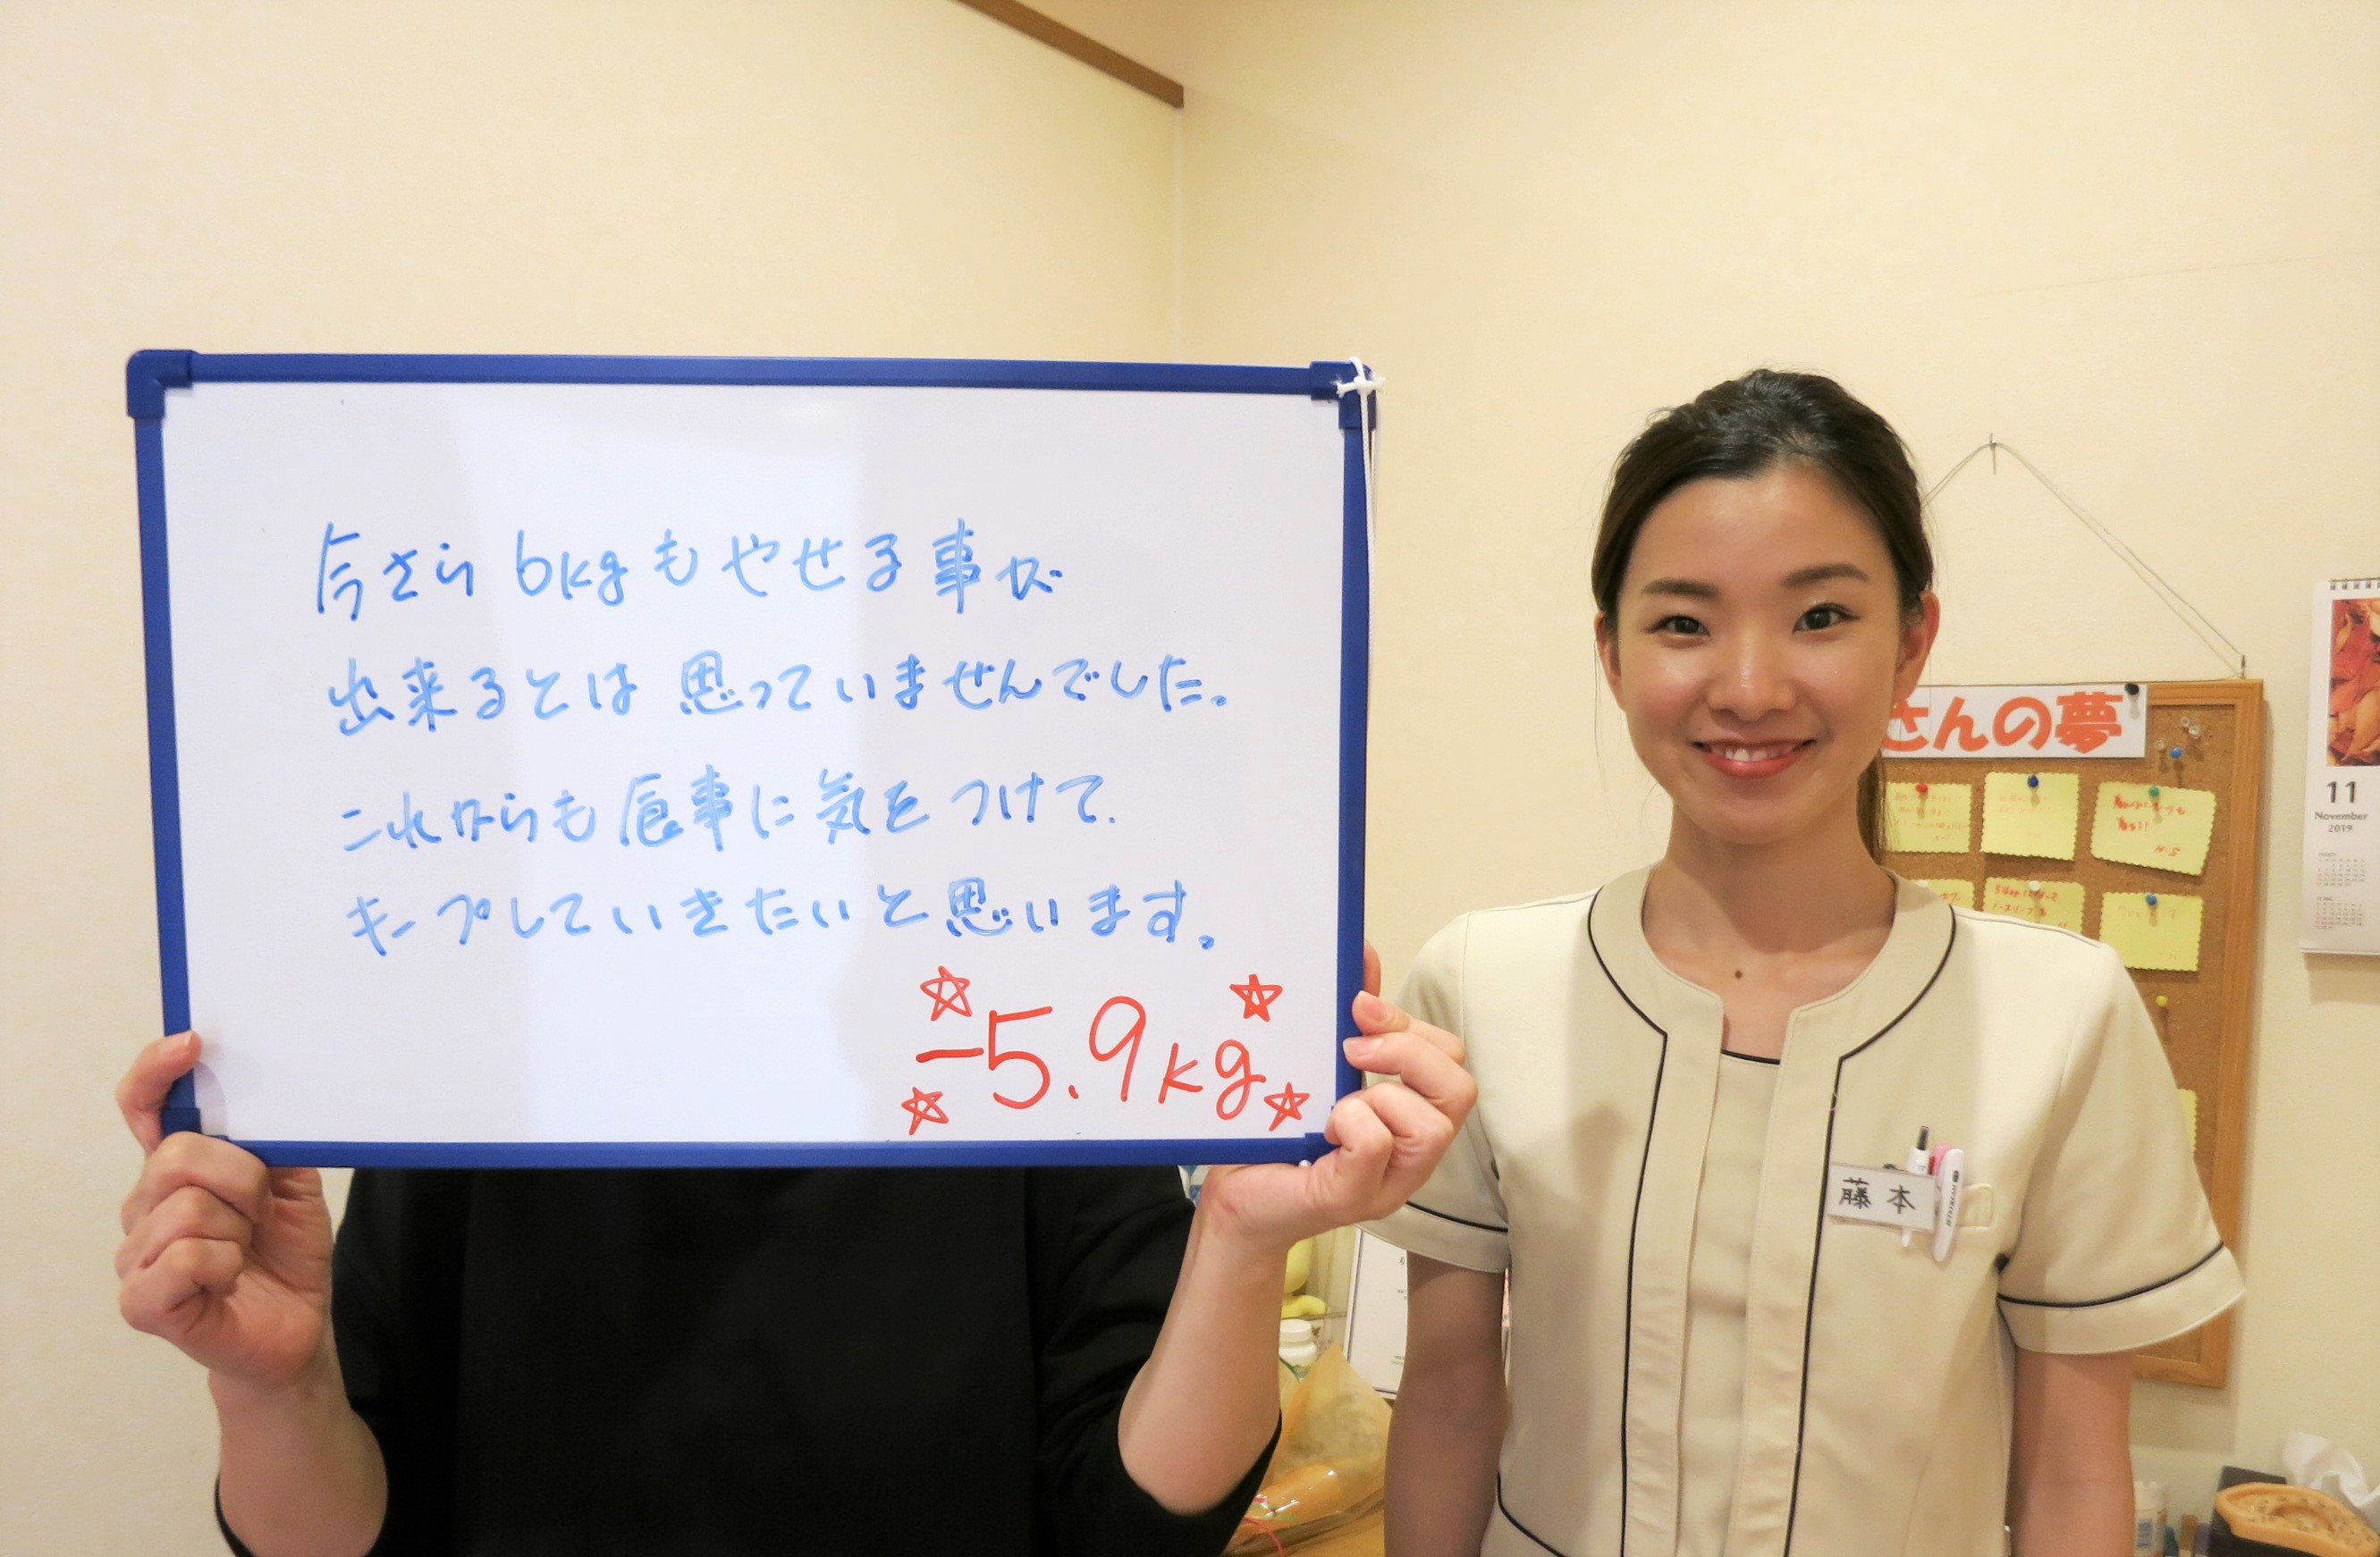 今さら6kgもやせる事が
出来るとは思っていませんでした。
これからも食事に気をつけて、
キープしていきたいと思います。
-5.9kg
藤本
さんの夢
11
November
2019